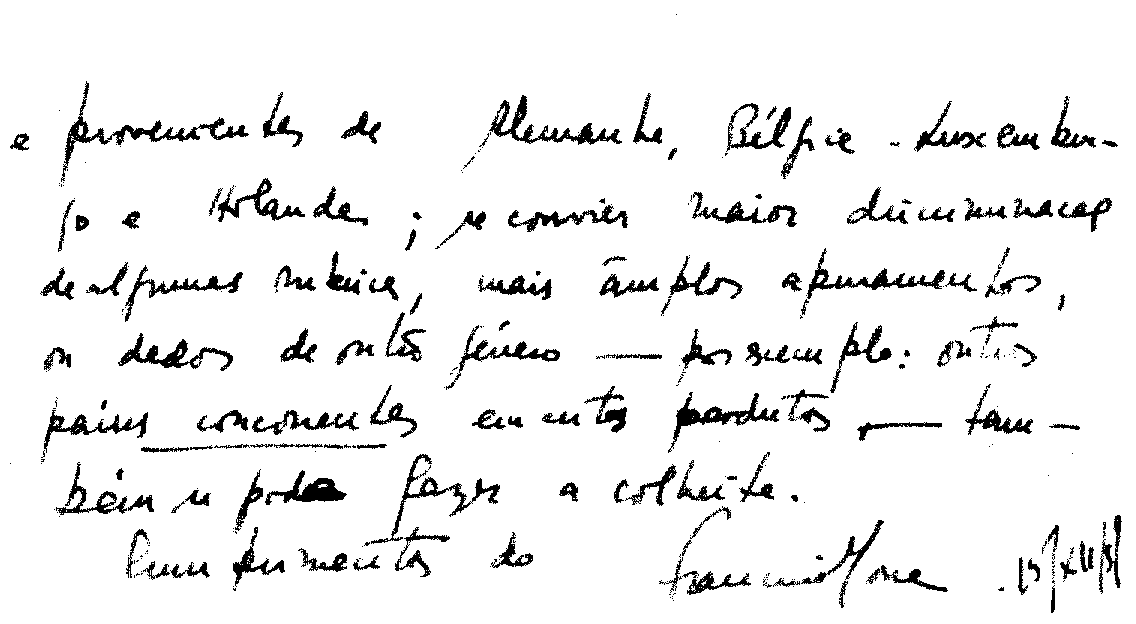 e provenientes de Alemanha, Bélgica - Luxembur-
go e Holanda ; se convier maior discriminação
de algumas rubricas, mais âmplos apuramentos,
ou dados de outro género — por exemplo: outros
países concorrentes em certos produtos, — tam-
bém se pode fazer a colheita.
Cumprimentos do